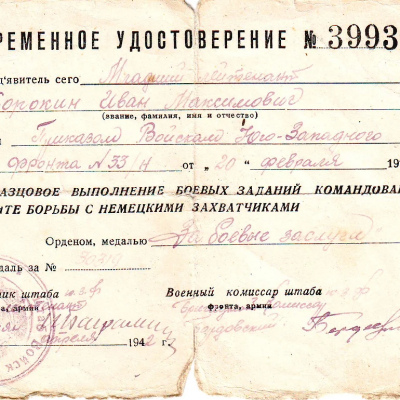 РЕМЕННОЕ УДОСТОВЕРЕНИЕ № 3993
д'явитель сего Младший лейтенант
Сорокин Иван Максимович
(звание, фамилия, имя и отчество)
Приказом Войскам Юго-Западного
Фронта N 33/н от „20" февраля 19
АЗЦОВОЕ ВЫПОЛНЕНИЕ БОЕВЫХ ЗАДАНИЙ КОМАНДОВА
ИТЕ БОРЬБЫ С НЕМЕЦКИМИ ЗАХВАТЧИКАМИ
Орденом, медалью „За боевые заслуги"
даль за №
ник штаба ю.з.ф. Военный комиссар штаба ю.з.ф
а, армии фронта, армия
Бригадный комиссар
апреля 1942 г.
ВОЙСК